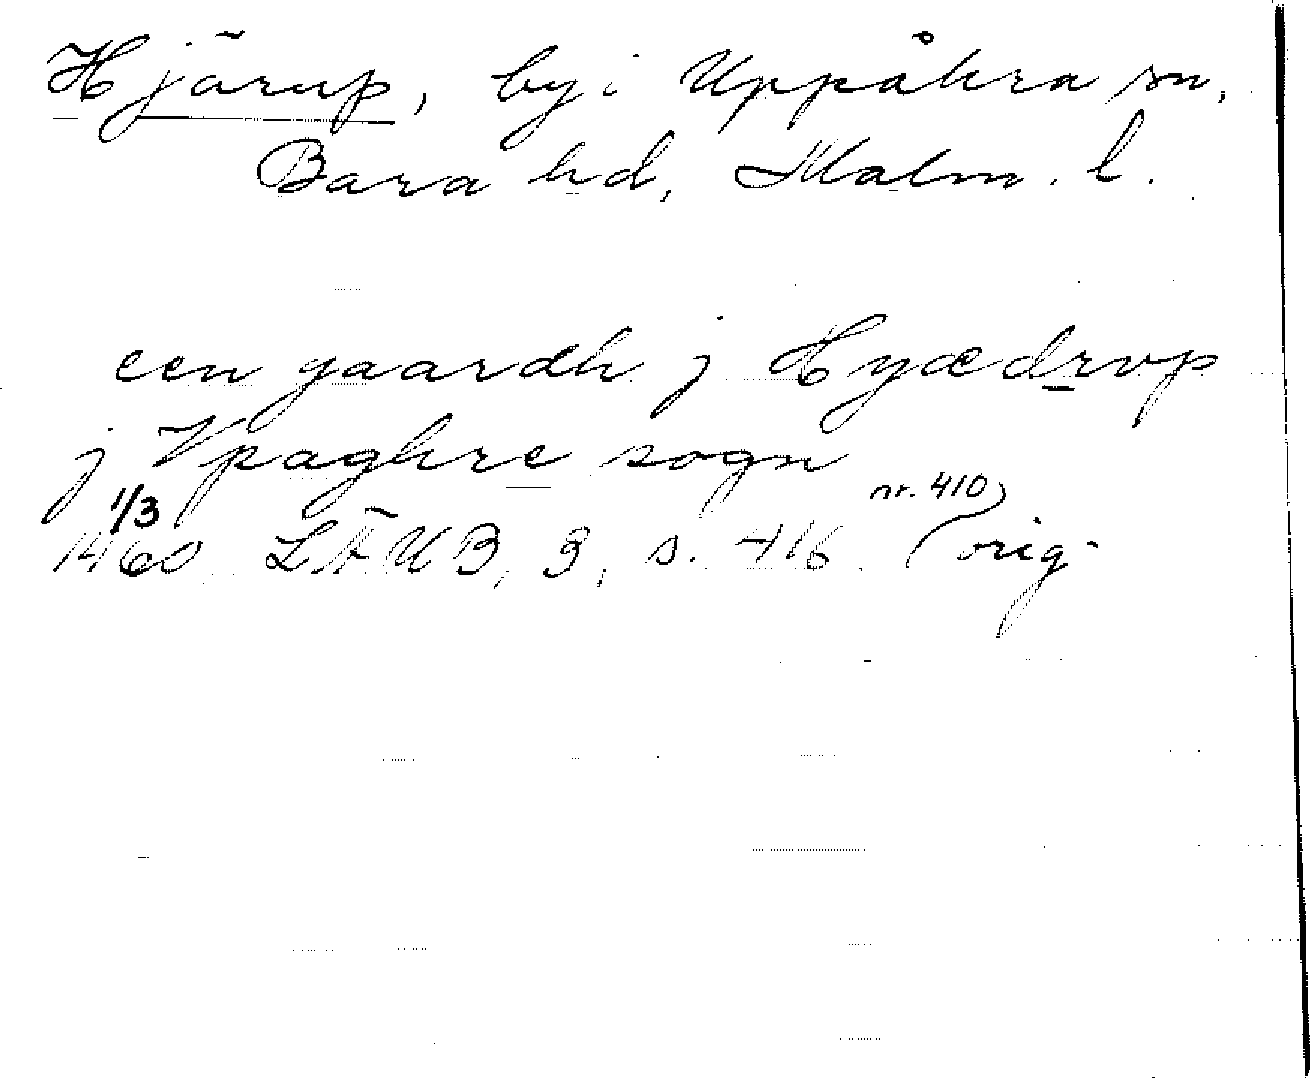 Hjärup, by i Uppåkra sn,
Bara hd, Malm. l.
een gaardh j Hyædrvp
j Vpaghre sogn
1/3 nr. 410
1460 LÄUB, 3, s. 416 (orig.